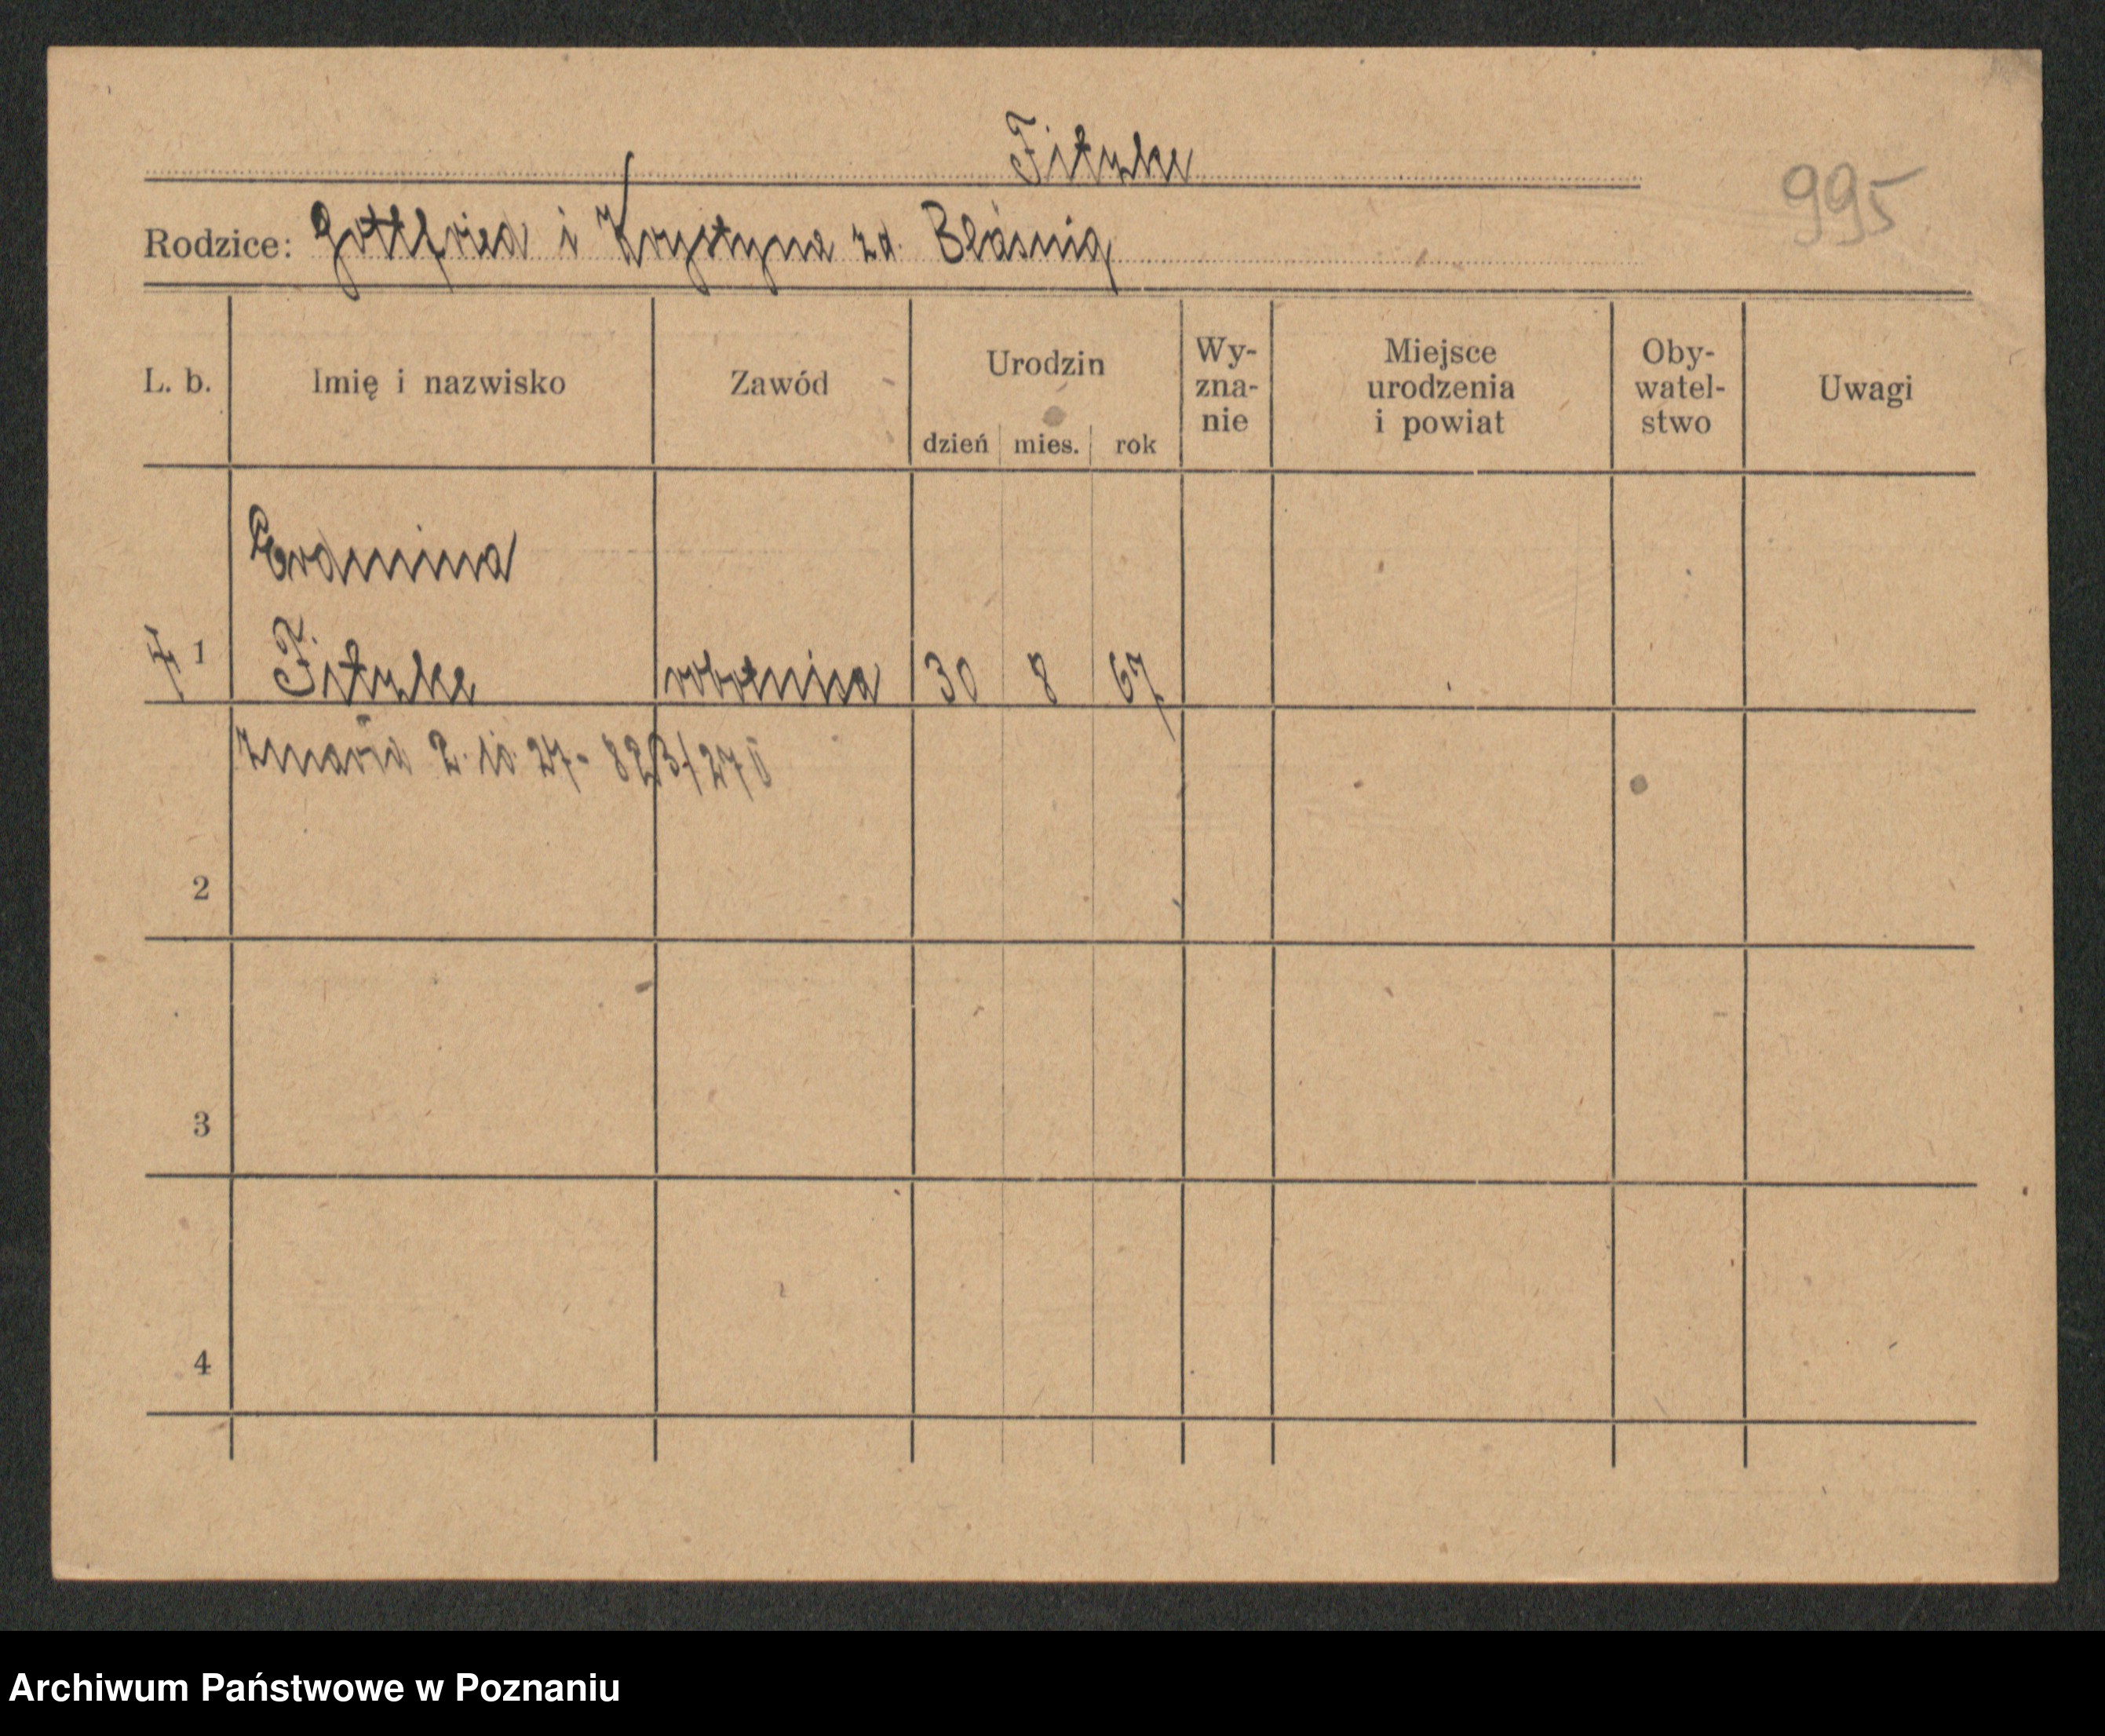 Fitzke
995
Rodzice: Gottfried i Krystyna zd. Błaśnig
L. b. Imię i nazwisko Zawód Urodzin dzień mies. rok Wy-zna-nie Miejsce urodzenia i powiat Oby-watel-stwo Uwagi
Erdmina
1 Fitzke robotnica 30 8 67
Zmarła 2. 10. 27 -
2
3
4
Archiwum Państwowe w Poznaniu